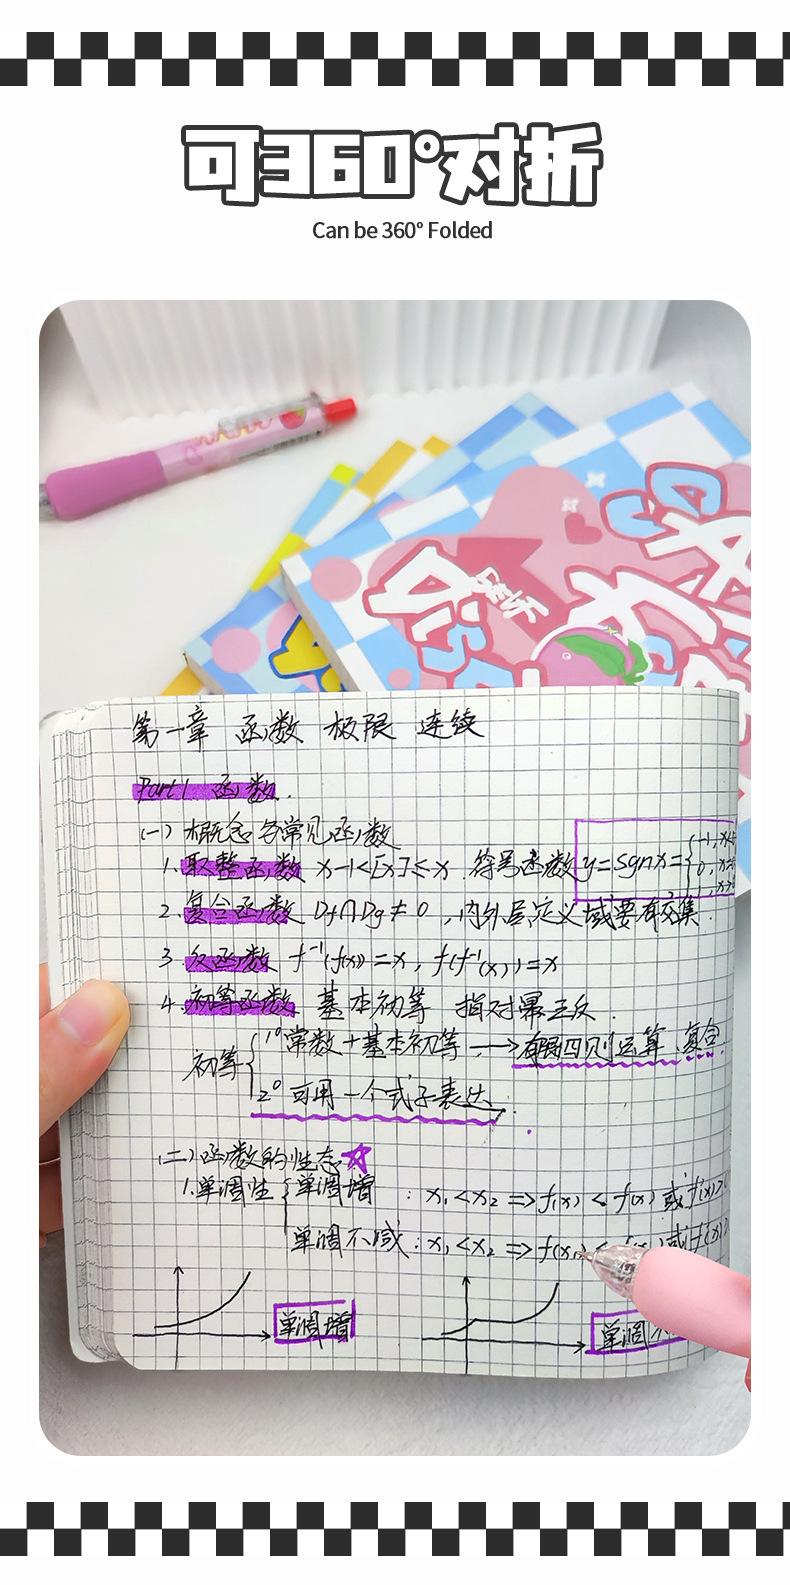 可360°对折
Can be 360° Folded
第一章 函数 极限 连续
Part1 函数.
(一) 概念 各常见函数
1. 取整函数 x-1<[x]≤x 符号函数 y=sgnx={-1, x<
0, x=
1, x>
2. 复合函数 Df∩Dg≠0, 内外层定义域要有交集.
3 反函数 f⁻¹(f(x))=x, f(f⁻¹(x))=x
4. 初等函数 基本初等 指对幂三反.
初等{1° 常数+基本初等 → 有限四则运算、复合
2° 可用一个式子表达.
(二) 函数的性态 ☆
1. 单调性{单调增 : x₁<x₂ ⇒ f(x) < f(x) 或 f'(x)>
单调不减 : x₁<x₂ ⇒ f(x₁)≤ 或 f'(x)
单调增
单调不